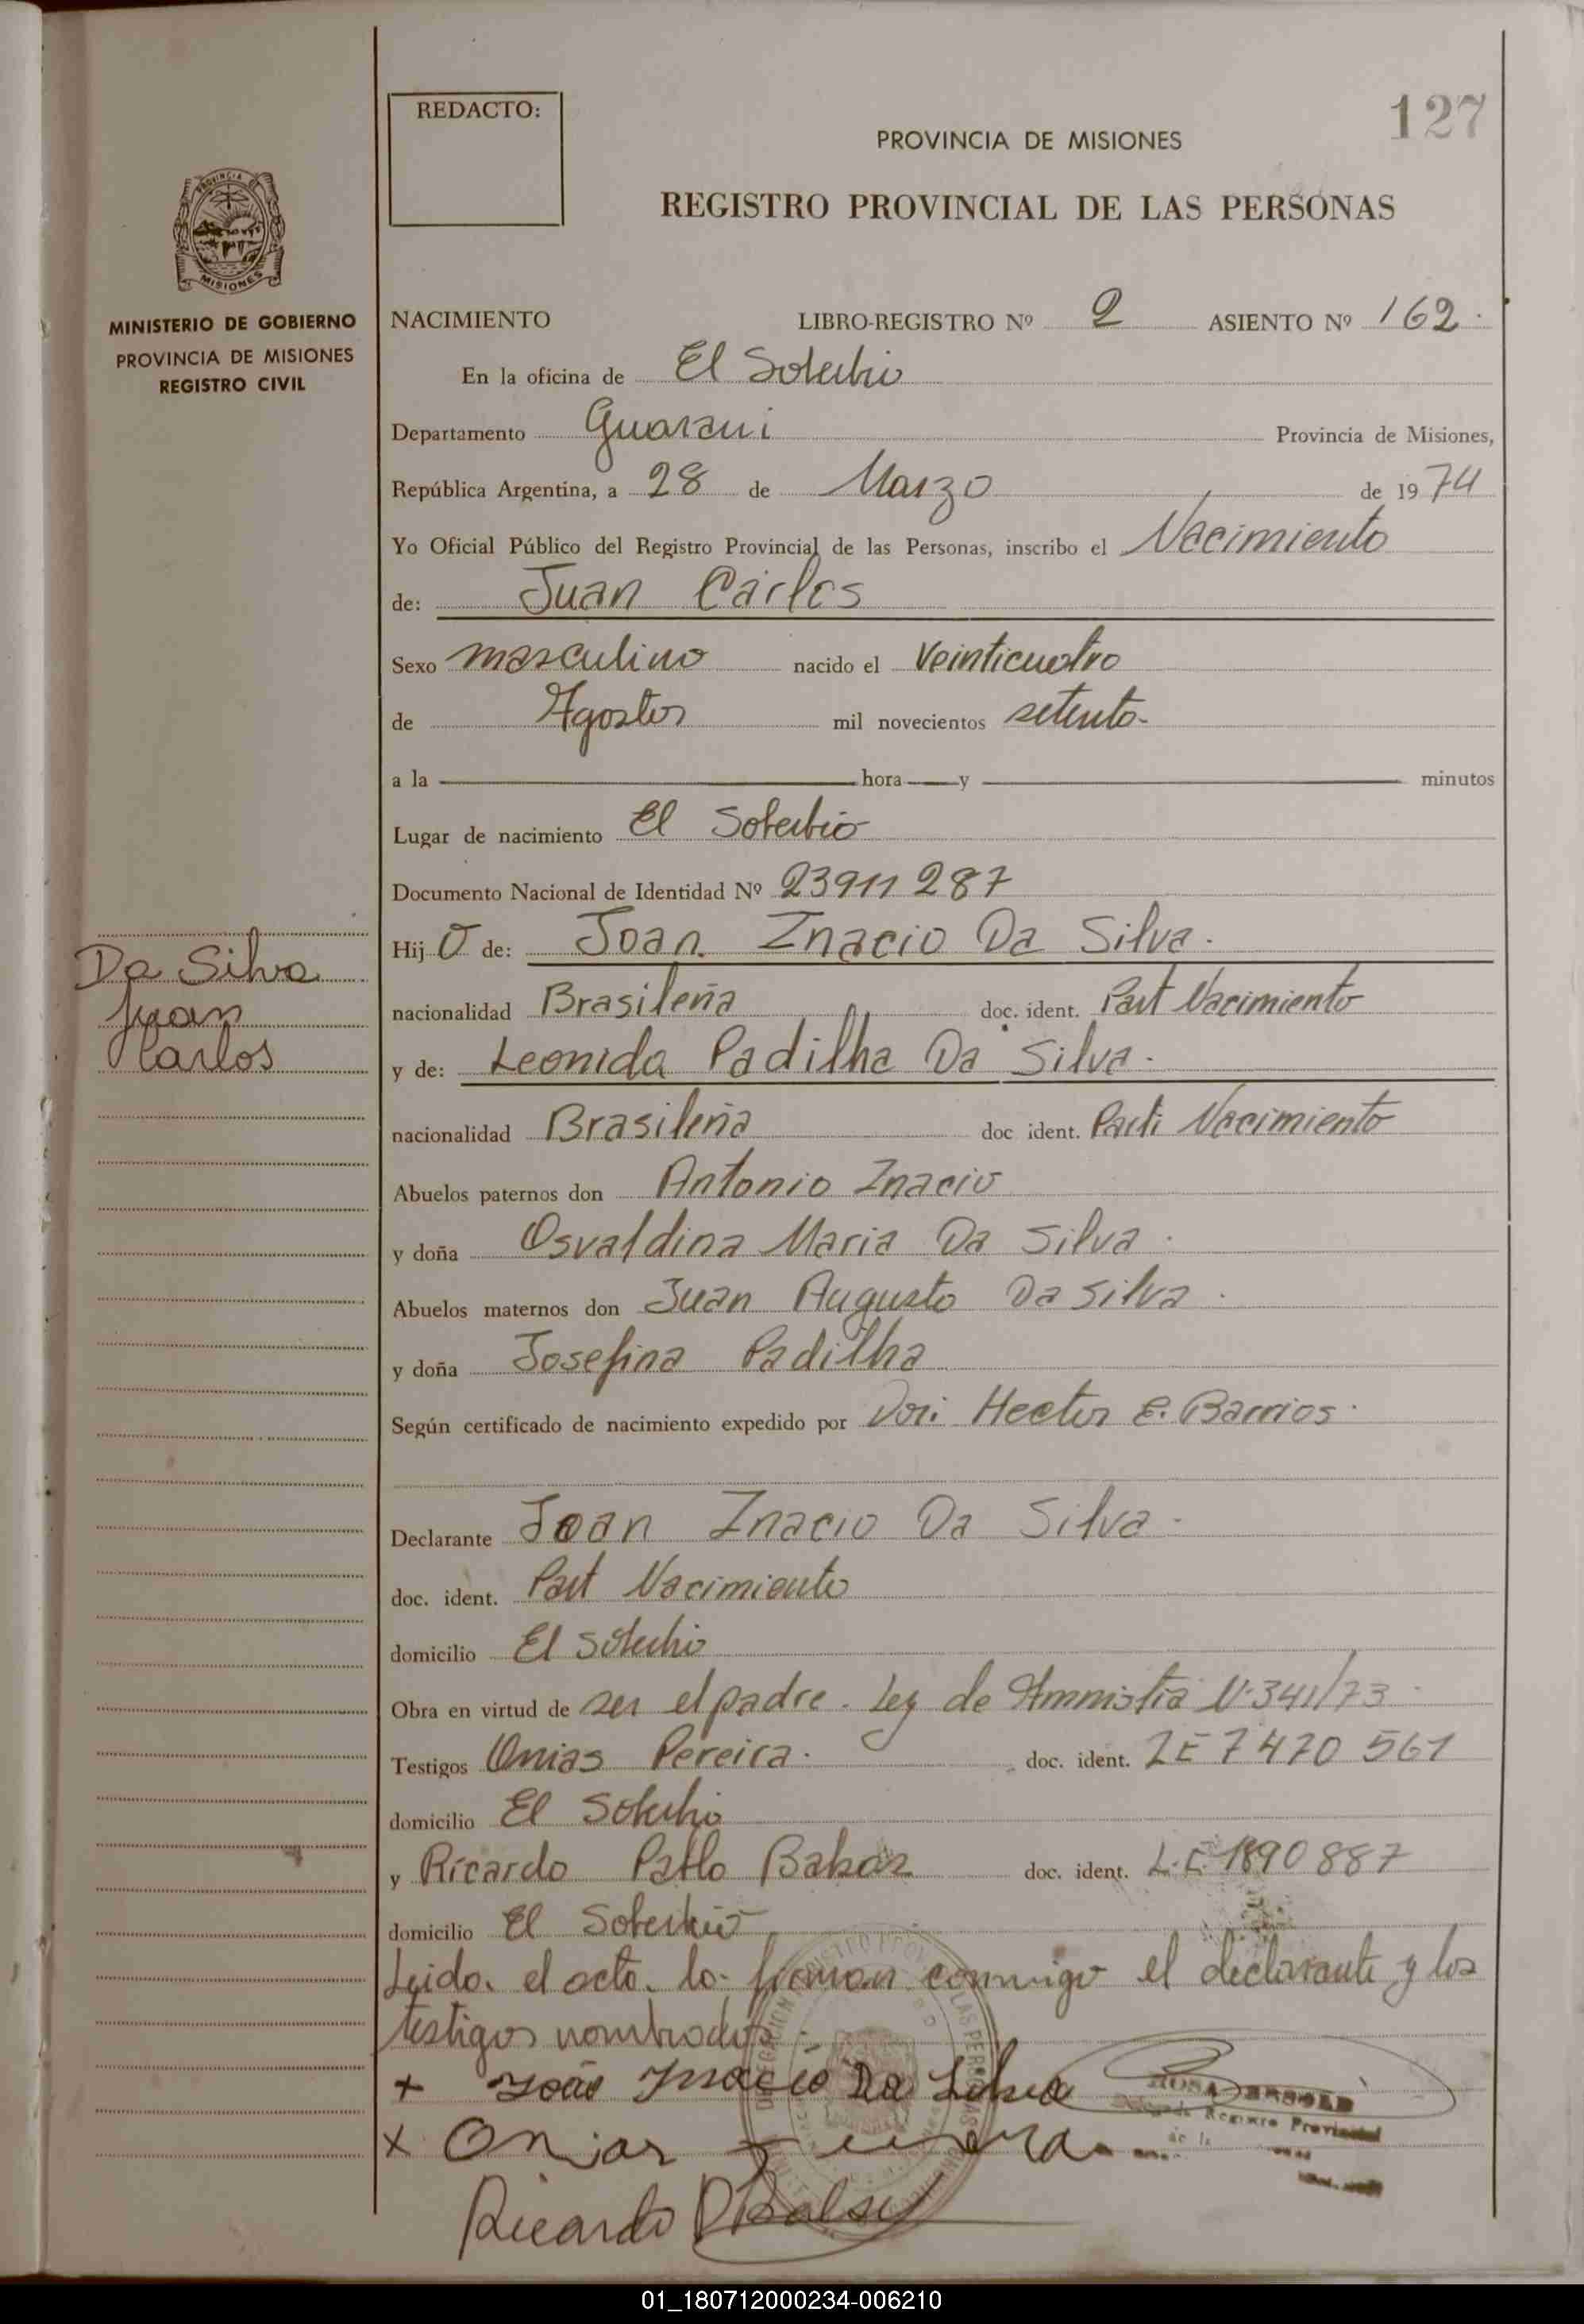 127
REDACTO:
PROVINCIA DE MISIONES
REGISTRO PROVINCIAL DE LAS PERSONAS
PROVINCIA
MISIONES
MINISTERIO DE GOBIERNO
PROVINCIA DE MISIONES
REGISTRO CIVIL
NACIMIENTO LIBRO-REGISTRO Nº 2 ASIENTO Nº 162.
En la oficina de El Soberbio
Departamento Guarani Provincia de Misiones,
República Argentina, a 28 de Marzo de 1974
Yo Oficial Público del Registro Provincial de las Personas, inscribo el Nacimiento
de: Juan Carlos
Sexo masculino nacido el veinticuatro
de Agosto mil novecientos setenta-
a la hora y minutos
Lugar de nacimiento El Soberbio
Documento Nacional de Identidad Nº 23911287
Hijo de: Joan Inacio Da Silva.
nacionalidad Brasileña doc. ident. Part Nacimiento
y de: Leonida Padilha Da Silva.
nacionalidad Brasileña doc ident. Parti Nacimiento
Da Silva
Juan
Carlos
Abuelos paternos don Antonio Inacio
y doña Osvaldina Maria Da Silva.
Abuelos maternos don Juan Augusto Da Silva.
y doña Josefina Padilha
Según certificado de nacimiento expedido por Hector E. Barrios.
Declarante Joan Inacio Da Silva.
doc. ident. Part Nacimiento
domicilio El Soberbio
Obra en virtud de ser el padre. Ley de Amnistia N·341/73.
Testigos Onias Pereira. doc. ident. LE 7470561
domicilio El Soberbio
y Ricardo Pablo doc. ident. L.E. 1890887
domicilio El Soberbio
Leida el acta, la firman conmigo el declarante y los
testigos nombrados.
+ João Inacio Da Silva
x Onias
Ricardo P
Registro Provincial
de la
01_180712000234-006210